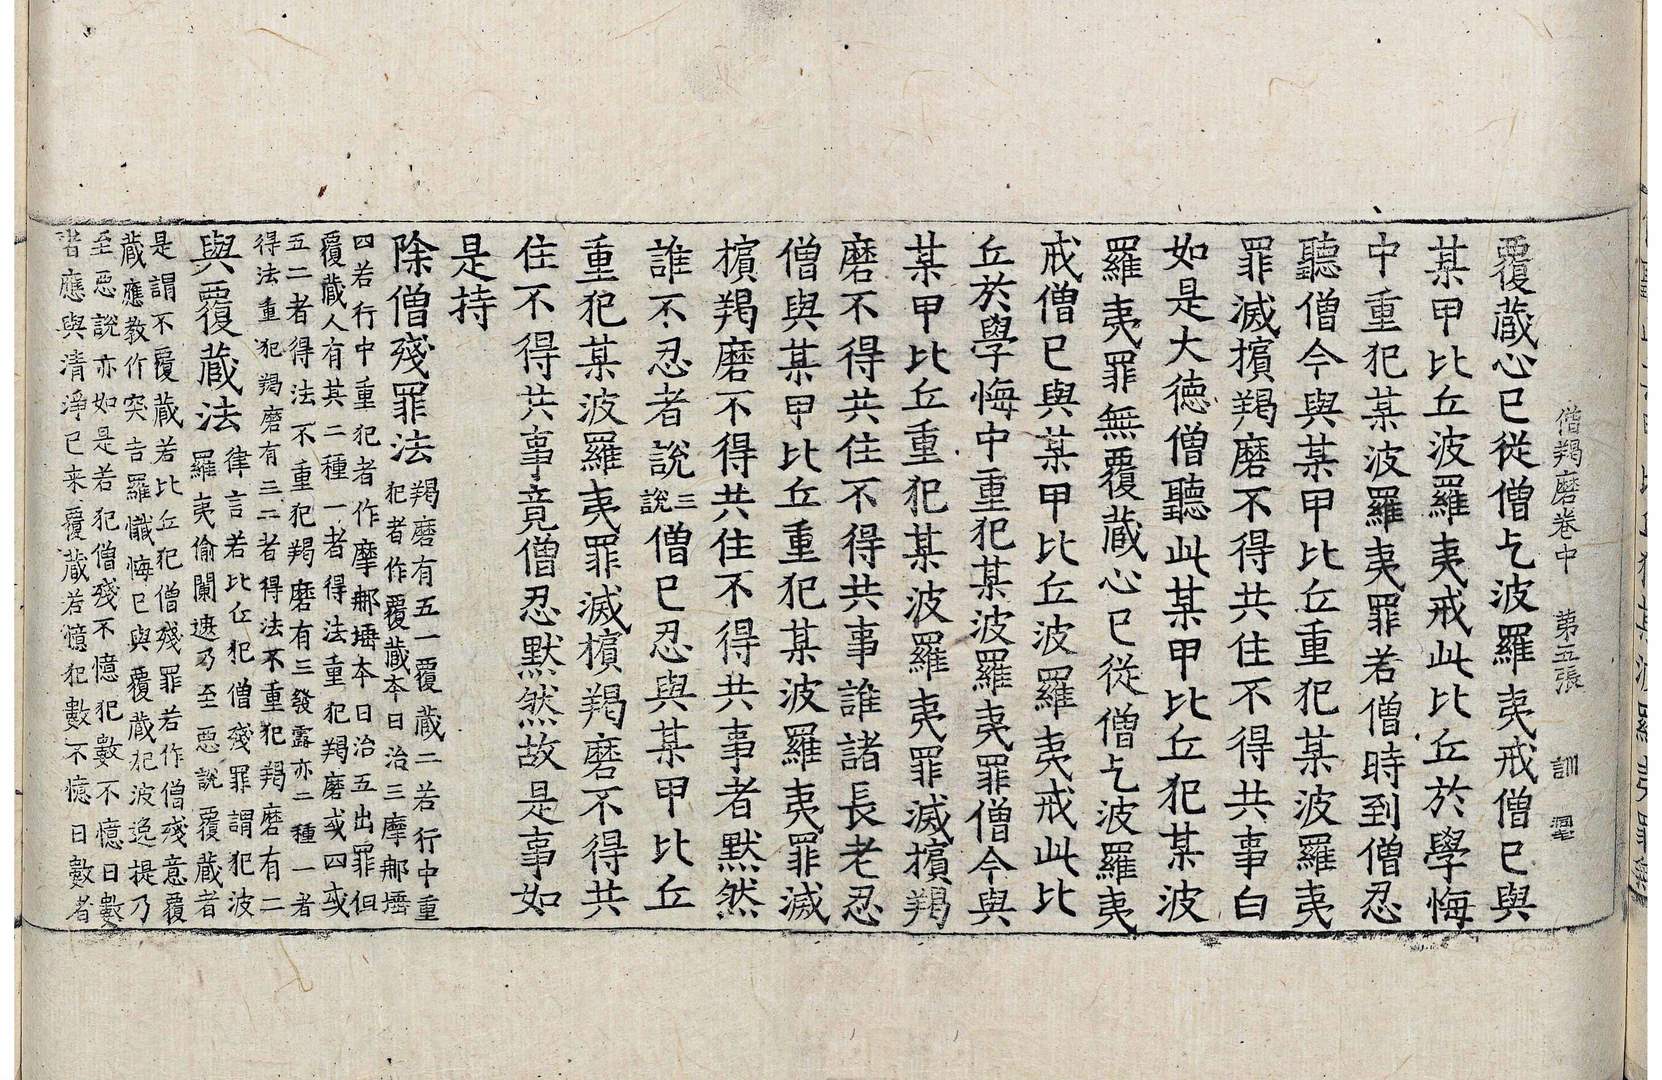 僧羯磨卷中　第五張　訓
覆藏心已從僧乞波羅夷戒僧已與
某甲比丘波羅夷戒此比丘於學悔
中重犯某波羅夷罪若僧時到僧忍
聽僧今與某甲比丘重犯某波羅夷
罪滅擯羯磨不得共住不得共事白
如是大德僧聽此某甲比丘犯某波
羅夷罪無覆藏心已從僧乞波羅夷
戒僧已與某甲比丘波羅夷戒此比
丘於學悔中重犯某波羅夷罪僧今與
某甲比丘重犯某波羅夷罪滅擯羯
磨不得共住不得共事誰諸長老忍
僧與某甲比丘重犯某波羅夷罪滅
擯羯磨不得共住不得共事者默然
誰不忍者說三說僧已忍與某甲比丘
重犯某波羅夷罪滅擯羯磨不得共
住不得共事竟僧忍默然故是事如
是持
除僧殘罪法羯磨有五一覆藏二若行中重
犯者作覆藏本日治三摩那埵
四若行中重犯者作摩那埵本日治五出罪但
覆藏人有其二種一者得法重犯羯磨或四或
五二者得法不重犯羯磨有三發露亦二種一者
得法重犯羯磨有三二者得法不重犯羯磨有二
與覆藏法律言若比丘犯僧殘罪謂犯波
羅夷偷蘭遮乃至惡說覆藏者
是謂不覆藏若比丘犯僧殘罪若作僧殘意覆
藏應教作突吉羅懺悔已與覆藏犯波逸提乃
至惡說亦如是若犯僧殘不憶犯數不憶日數
者應與清淨已來覆藏若憶犯數不憶日數者